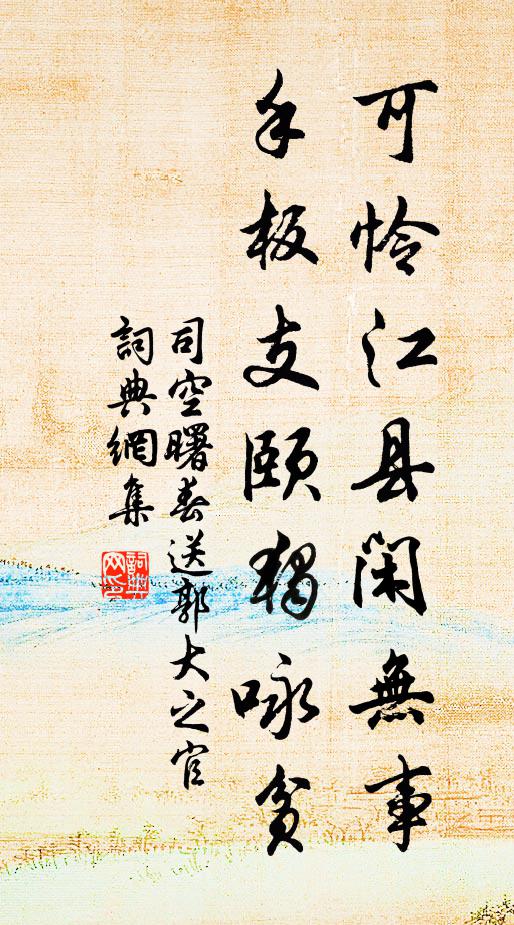 可怜江县閑無事
手板支頤獨咏貧
司空曙春送郭大之官
詞典網集